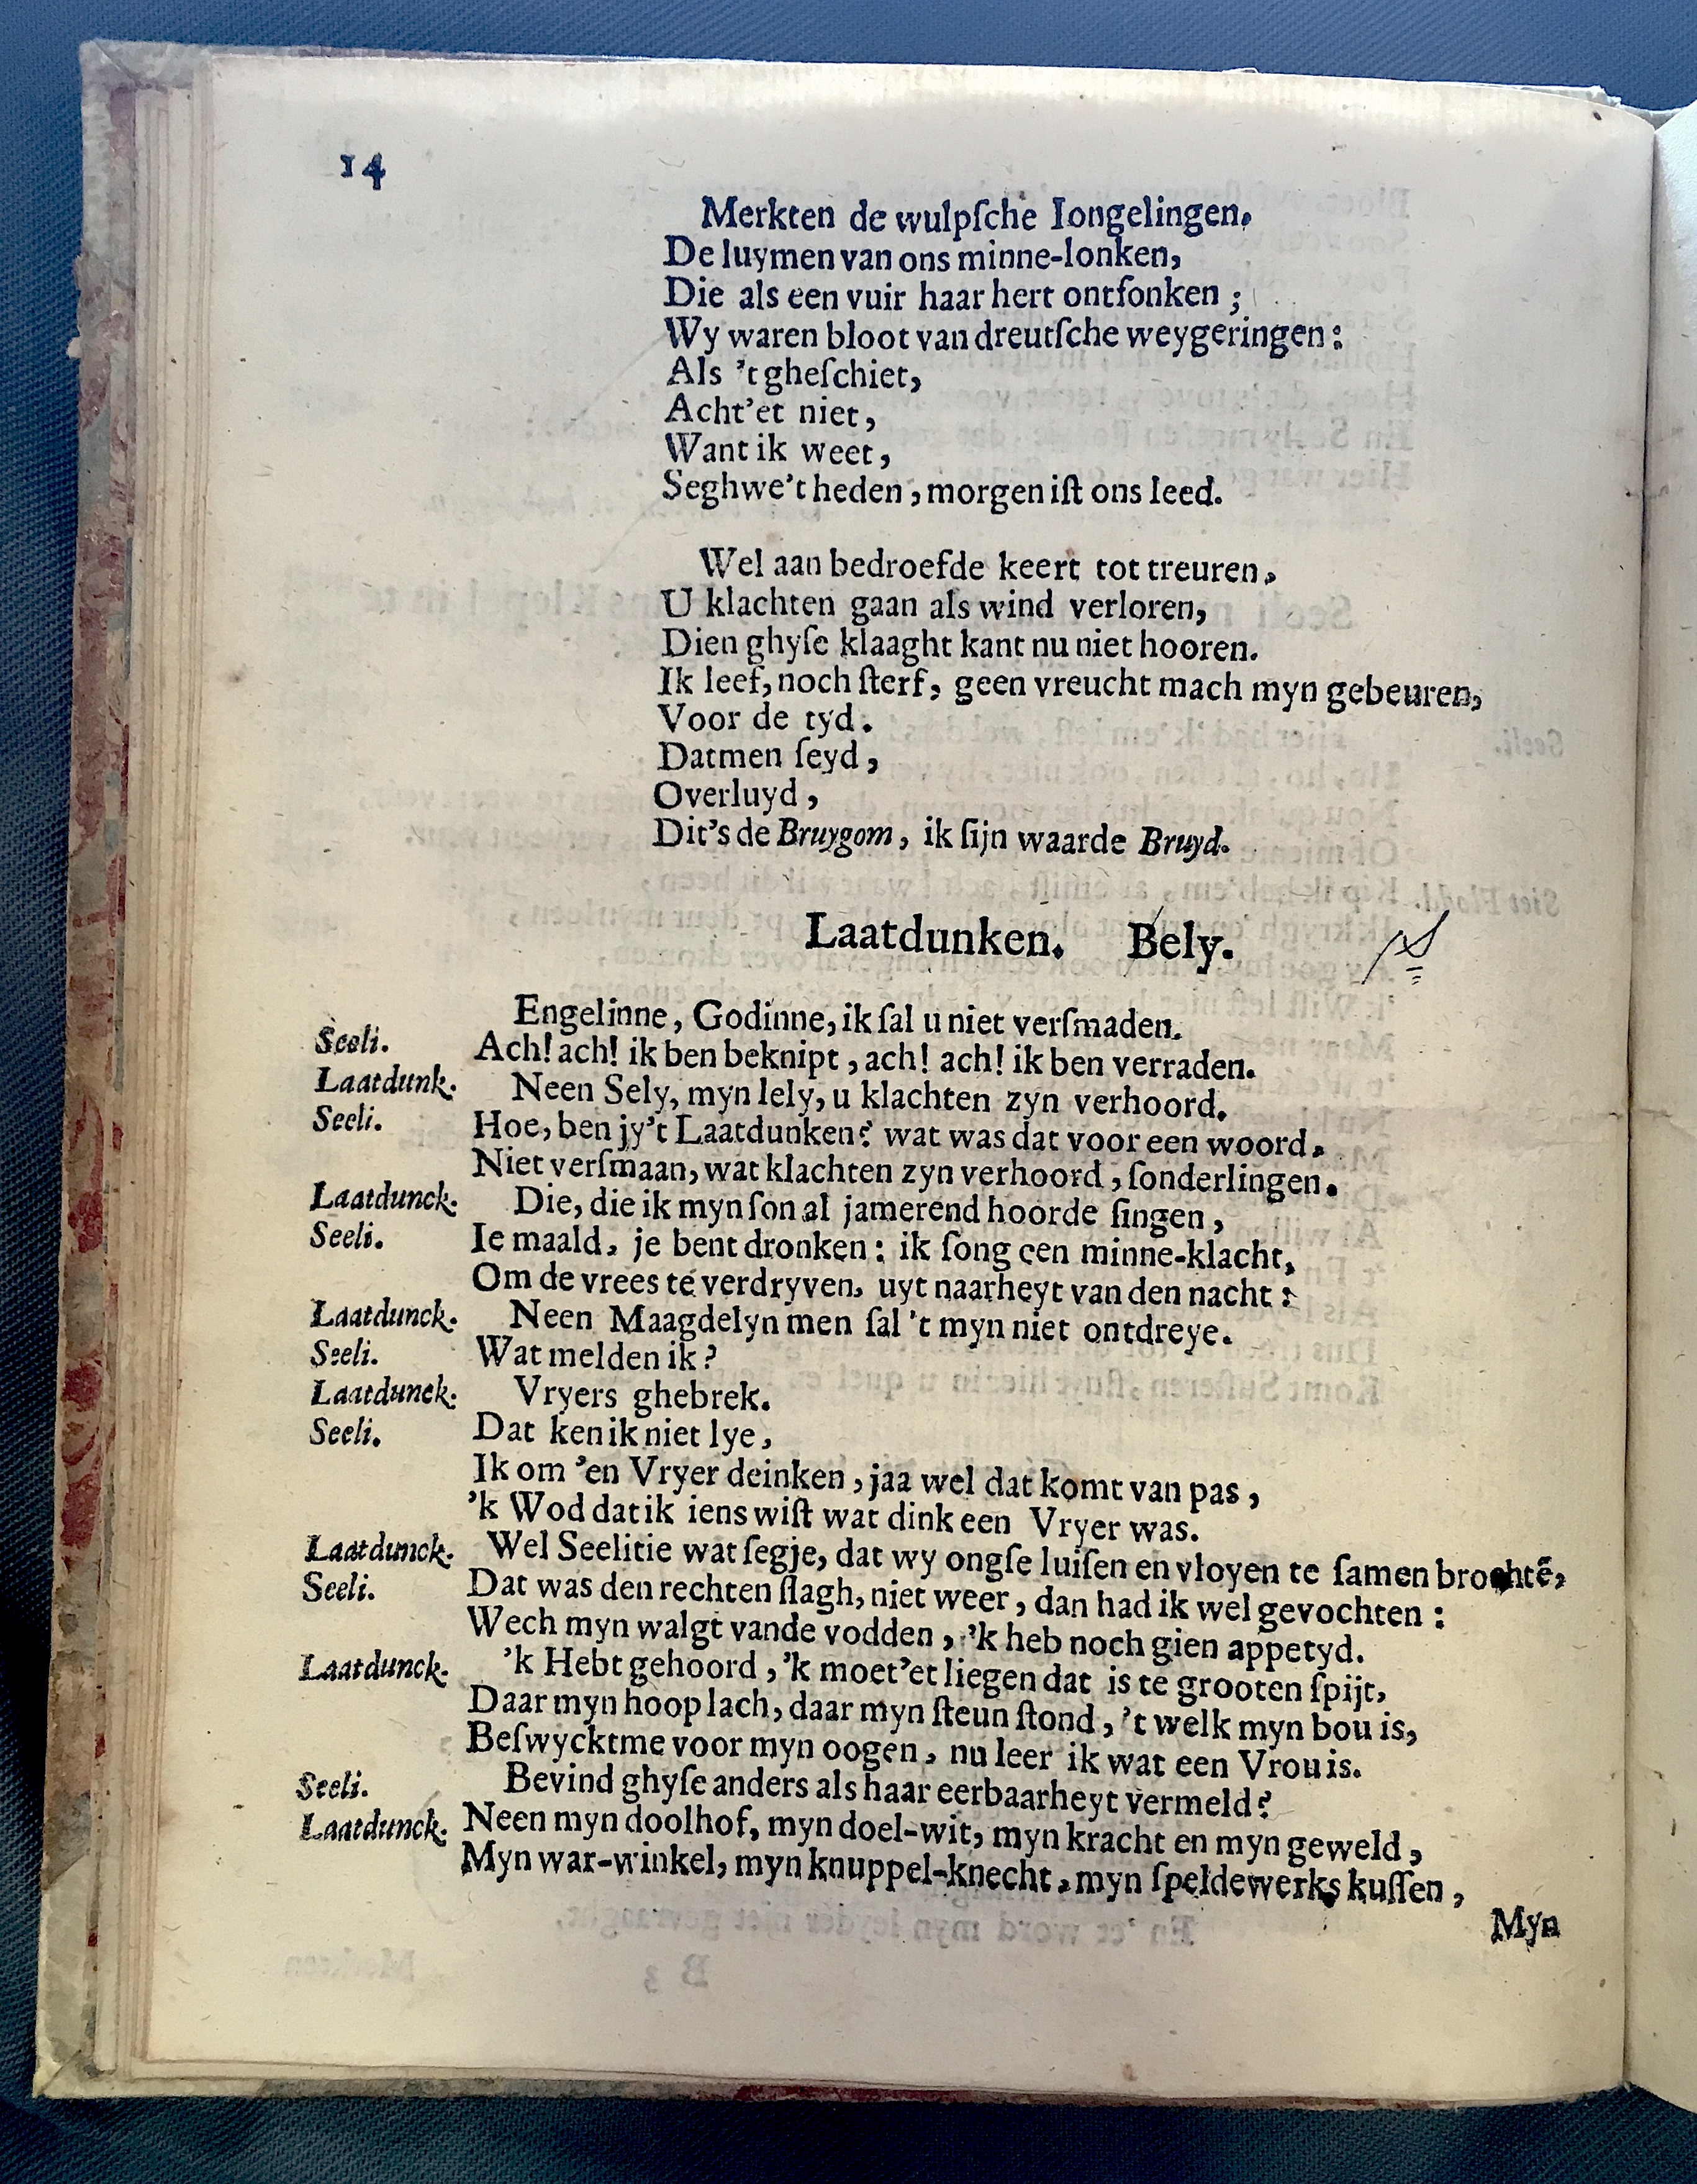 14
Merkten de wulpſche Iongelingen.
De luymen van ons minne-lonken,
Die als een vuir haar hert ontfonken ;
Wy waren bloot van dreutſche weygeringen :
Als 't gheſchiet,
Acht'et niet,
Want ik weet,
Seghwe't heden, morgen iſt ons leed.
Wel aan bedroefde keert tot treuren,
U klachten gaan als wind verloren,
Dien ghyſe klaaght kant nu niet hooren.
Ik leef, noch ſterf, geen vreucht mach myn gebeuren,
Voor de tyd.
Datmen ſeyd,
Overluyd,
Dit's de Bruygom, ik ſijn waarde Bruyd.
Laatdunken. Bely.
Engelinne, Godinne, ik ſal u niet verſmaden.
Seeli. Ach! ach! ik ben beknipt, ach! ach! ik ben verraden.
Laatdunk. Neen Sely, myn lely, u klachten zyn verhoord.
Seeli. Hoe, ben jy't Laatdunken? wat was dat voor een woord,
Niet verſmaan, wat klachten zyn verhoord, ſonderlingen.
Laatdunck. Die, die ik myn ſon al jamerend hoorde ſingen,
Seeli. Ie maald, je bent dronken : ik ſong een minne-klacht,
Om de vrees te verdryven, uyt naarheyt van den nacht :
Laatdunck. Neen Maagdelyn men ſal 't myn niet ontdreye.
Seeli. Wat melden ik?
Laatdunck. Vryers ghebrek.
Seeli. Dat ken ik niet lye,
Ik om 'en Vryer deinken, jaa wel dat komt van pas,
'k Wod dat ik iens wiſt wat dink een Vryer was.
Laatdunck. Wel Seelitie wat ſegje, dat wy ongſe luiſen en vloyen te ſamen brochtē,
Seeli. Dat was den rechten ſlagh, niet weer, dan had ik wel gevochten :
Wech myn walgt vande vodden, 'k heb noch gien appetyd.
Laatdunck. 'k Hebt gehoord, 'k moet'et liegen dat is te grooten ſpijt,
Daar myn hoop lach, daar myn ſteun ſtond, 't welk myn bou is,
Beſwycktme voor myn oogen, nu leer ik wat een Vrou is.
Seeli. Bevind ghyſe anders als haar eerbaarheyt vermeld?
Laatdunck. Neen myn doolhof, myn doel-wit, myn kracht en myn geweld,
Myn war-winkel, myn knuppel-knecht, myn ſpeldewerks kuſſen,
Myn